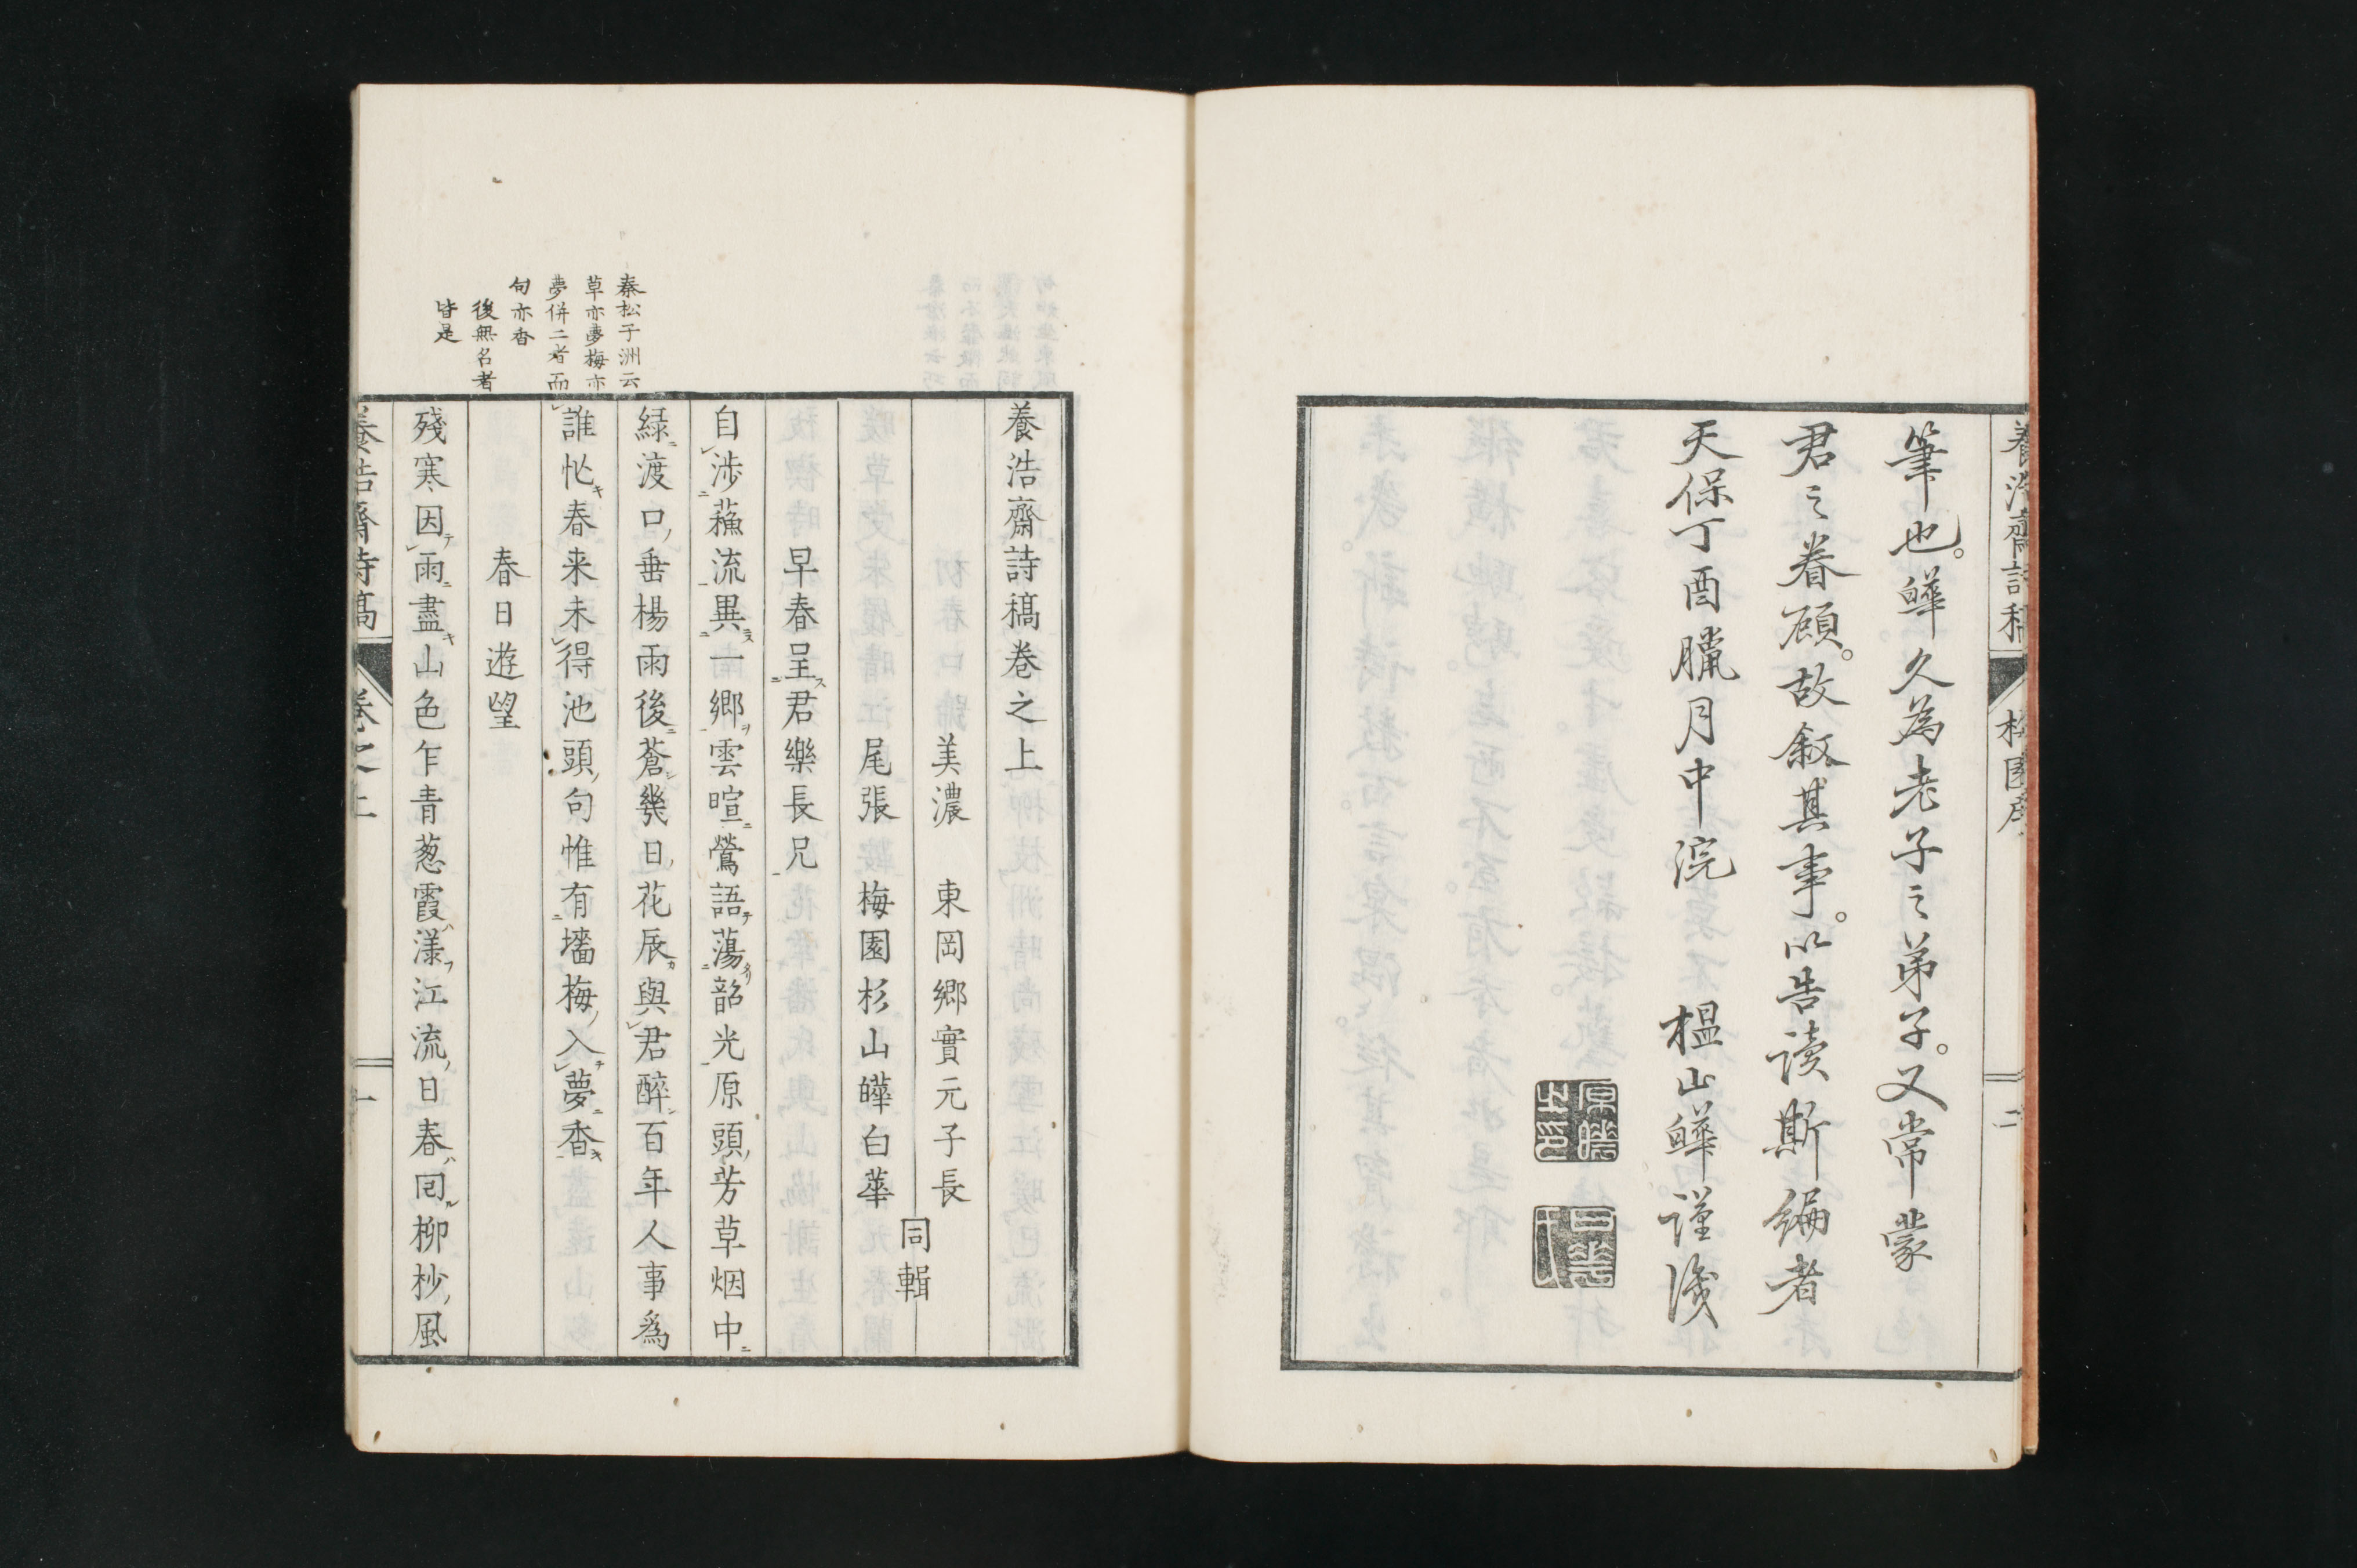 筆也。皣久為老子之弟子。又常蒙
君之眷顧。故叙其事。以告读斯编者
天保丁酉臘月中浣
榅山皣谨濩
養浩齋詩稿卷之上
美濃 東岡鄉實元子長
尾張 梅園杉山皣白華
同輯
早春呈君樂長兄
自涉蘓流異一鄉雲暄鶯語蕩韶光原頭芳草烟中
緑渡口垂楊雨後蒼幾日花辰與君醉百年人事為
誰忙春来未得池頭句惟有墻梅入夢香
春日遊望
殘寒因雨盡山色乍青葱霞漾江流日春回柳杪風
秦松子洲云
草亦夢梅亦
夢併二者而
句亦香
後無名者
皆是
養浩齋詩稿 卷之上 一